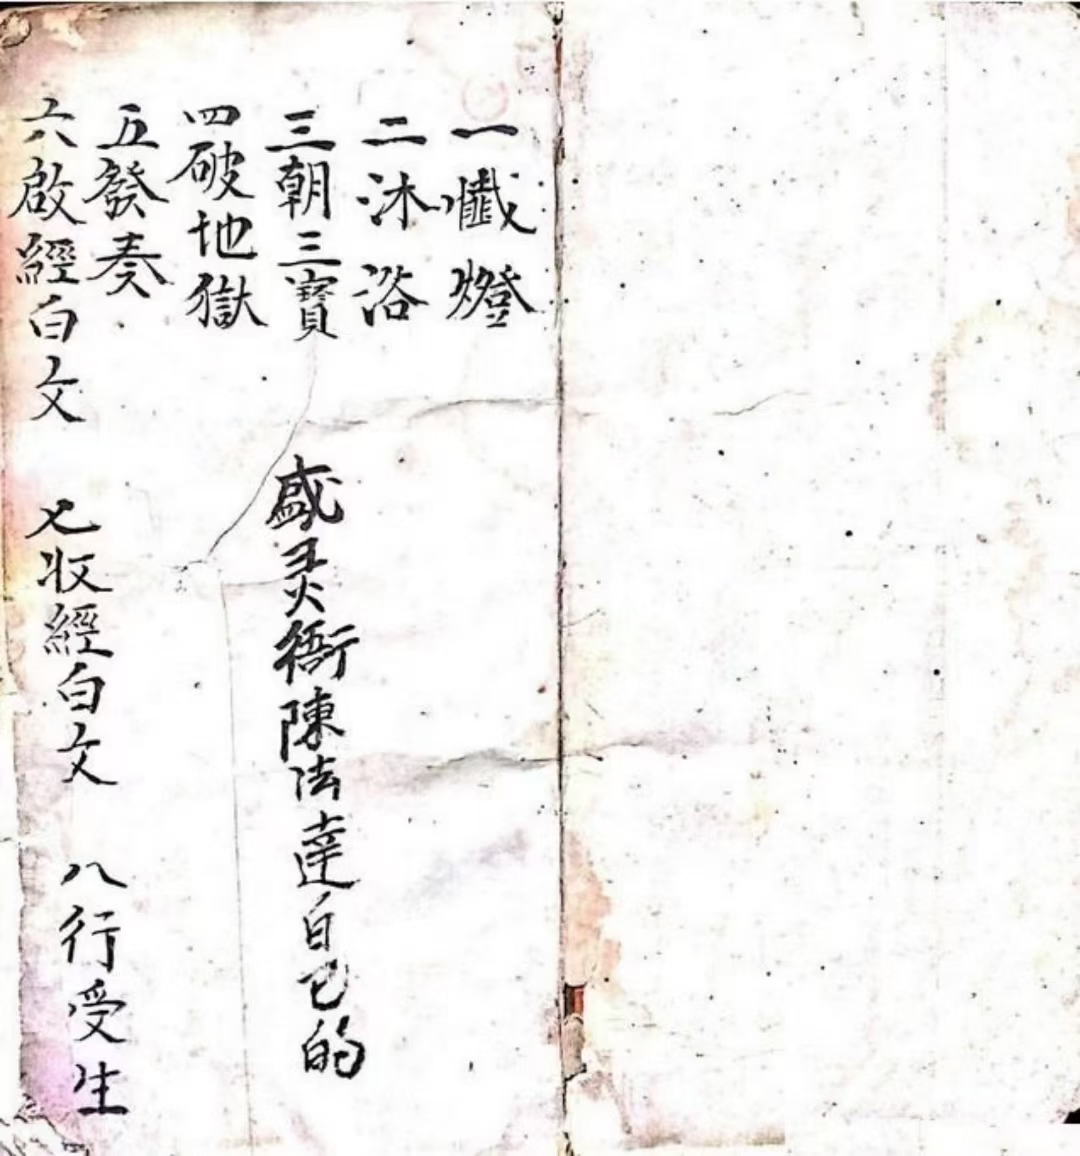 一懺燈
二沐浴
三朝三寶
盛灵衙陳法達自己的
四破地獄
五發奏
六啟經白文
七收經白文
八行受生